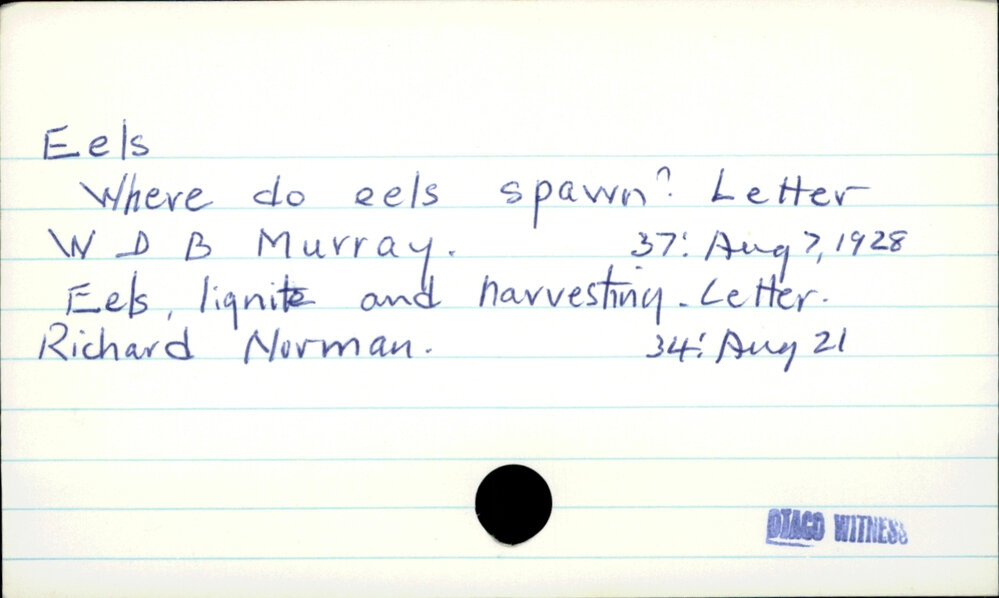 Eels
Where do eels spawn? Letter
W D B Murray. 37: Aug 7, 1928
Eels, lignite and harvesting. Letter.
Richard Norman. 34: Aug 21
OTAGO WITNESS